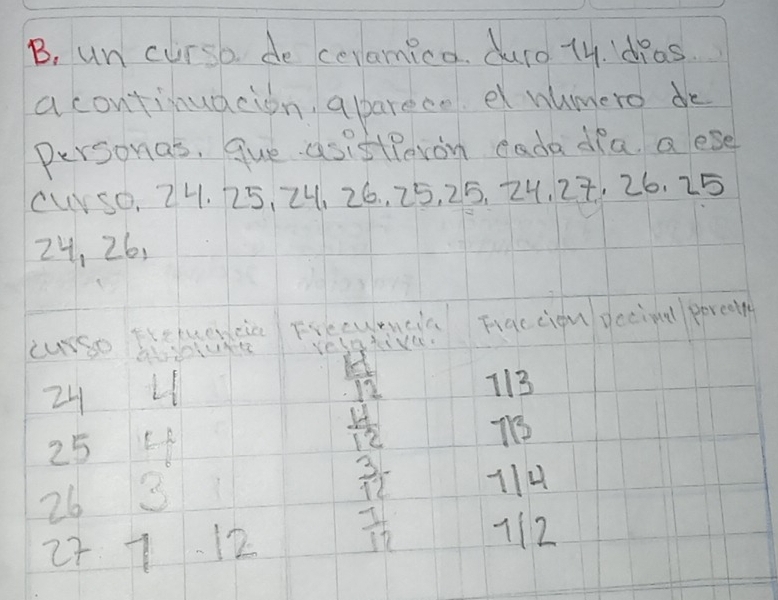 B. un curso de ceramica. duro 14. dias
a continuación. aparece. el numero de
personas. que asistierón cada dia. a ese
curso. 24. 25, 24, 26, 25, 25. 24, 27. 26. 25
24, 26,
curso Frecuencia absoluta Frecuencia relativa. Fraccion Decimal
24 4 4/12 1/3
25 4 4/12 1/3
26 3 3/12 1/4
27 1 .12 1/12 1/2